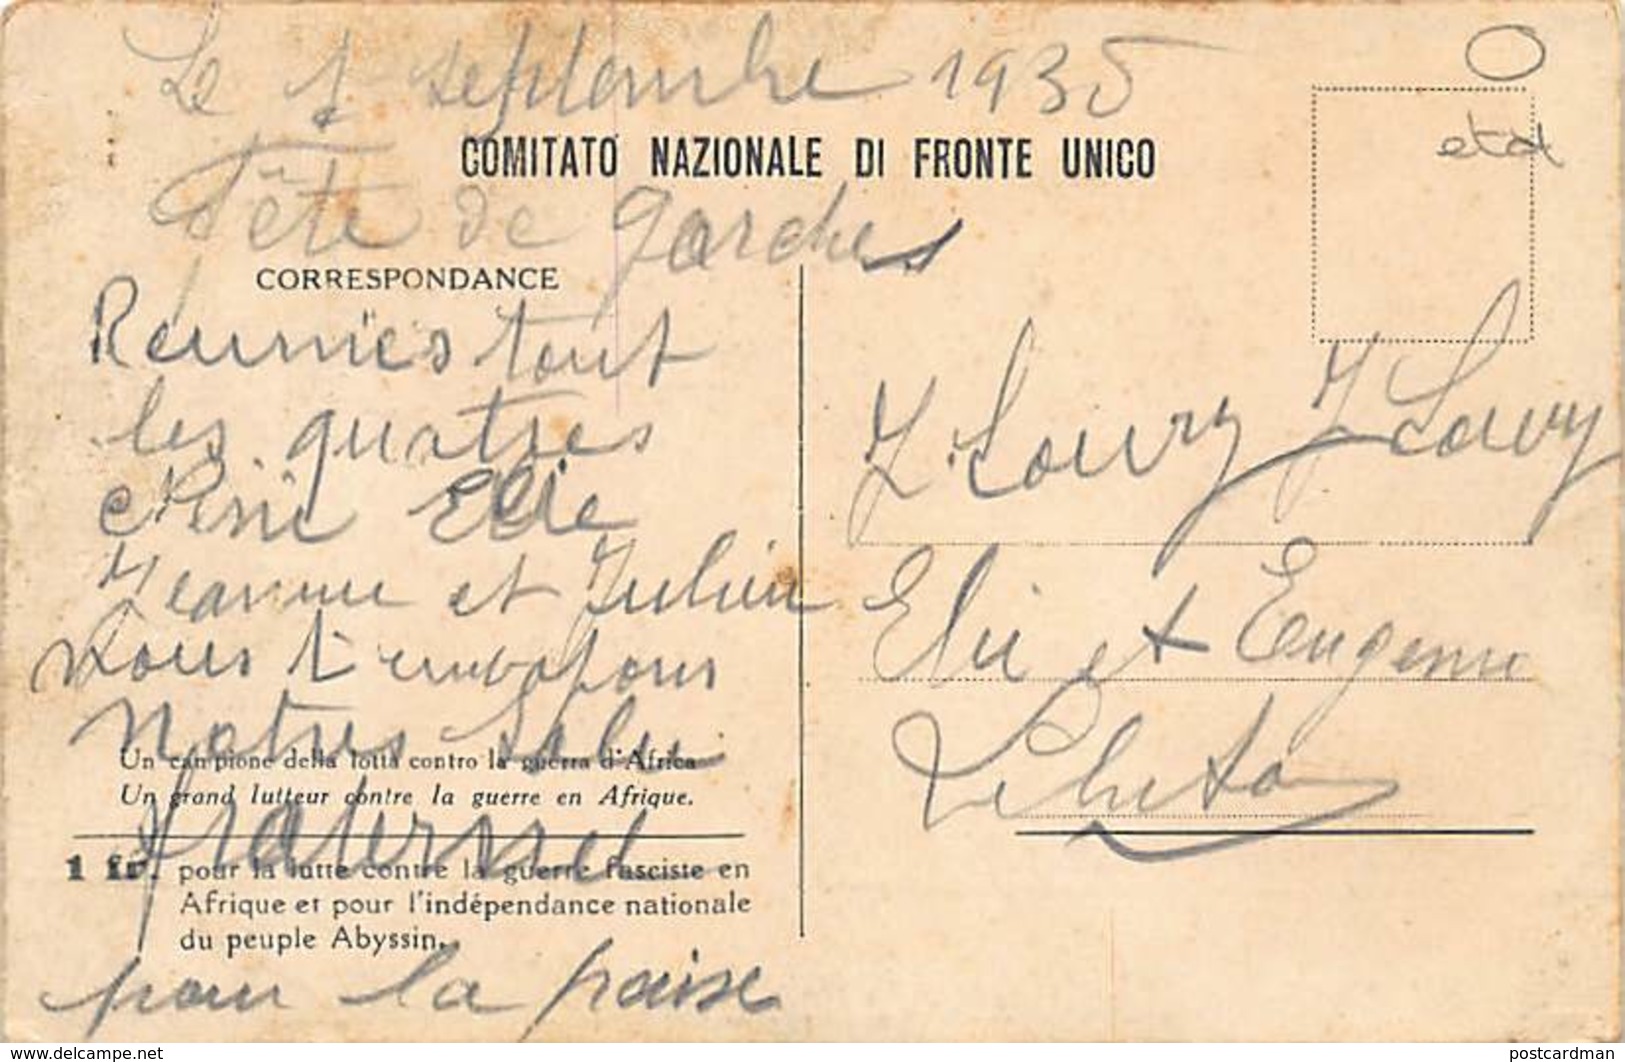 Le 1 septembre 1935
COMITATO NAZIONALE DI FRONTE UNICO
Fête de garches
CORRESPONDANCE
Reunies tout
les quatres
Elie
Jeanne et Julien
Nous t'envoyons
Notres Salu
fraternel
pour la paise
Un campione della lotta contro la guerra d'Africa
Un grand lutteur contre la guerre en Afrique.
1 fr. pour la lutte contre la guerre fasciste en
Afrique et pour l'indépendance nationale
du peuple Abyssin.
Elie et Eugenie
www.delcampe.net
postcardman